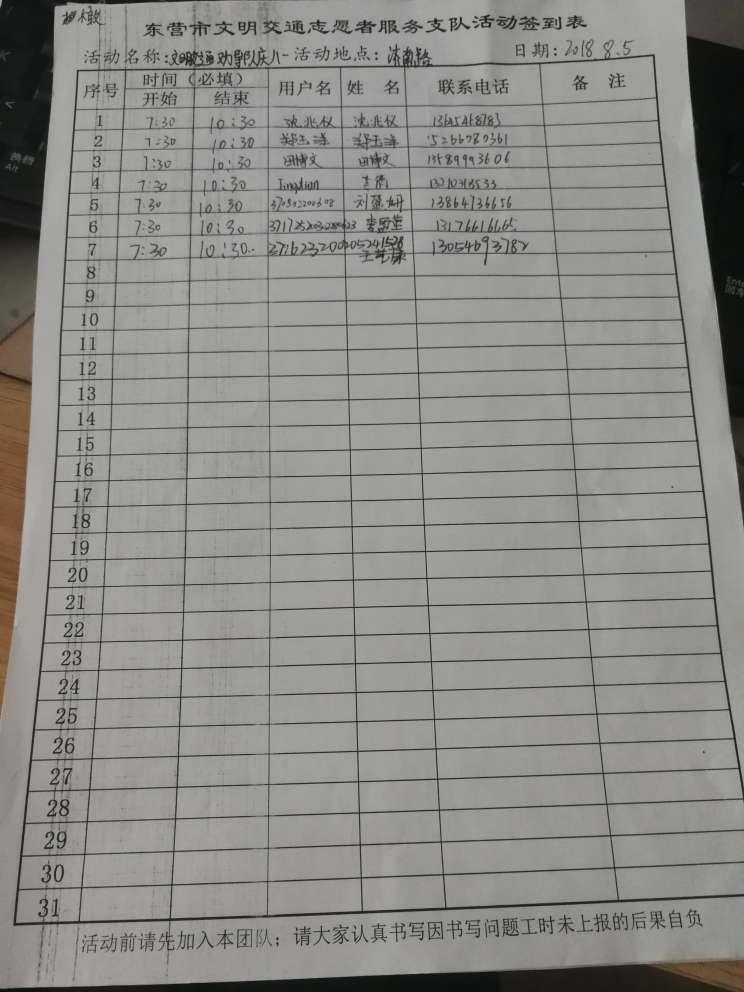 东营市文明交通志愿者服务支队活动签到表
活动名称:文明交通劝导队庆八一 活动地点:济南路 日期:2018.8.5
序号 时间(必填) 用户名 姓 名 联系电话 备 注
开始 结束
1 7:30 10:30 沈兆仪 沈兆仪
2 7:30 10:30 郑玉涛 郑玉涛
3 7:30 10:30 田博文 田博文 13589993606
4 7:30 10:30
5 7:30 10:30 13864736656
6 7:30 10:30
7 7:30 10:30 13054693782
8
9
10
11
12
13
14
15
16
17
18
19
20
21
22
23
24
25
26
27
28
29
30
31
活动前请先加入本团队;请大家认真书写因书写问题工时未上报的后果自负